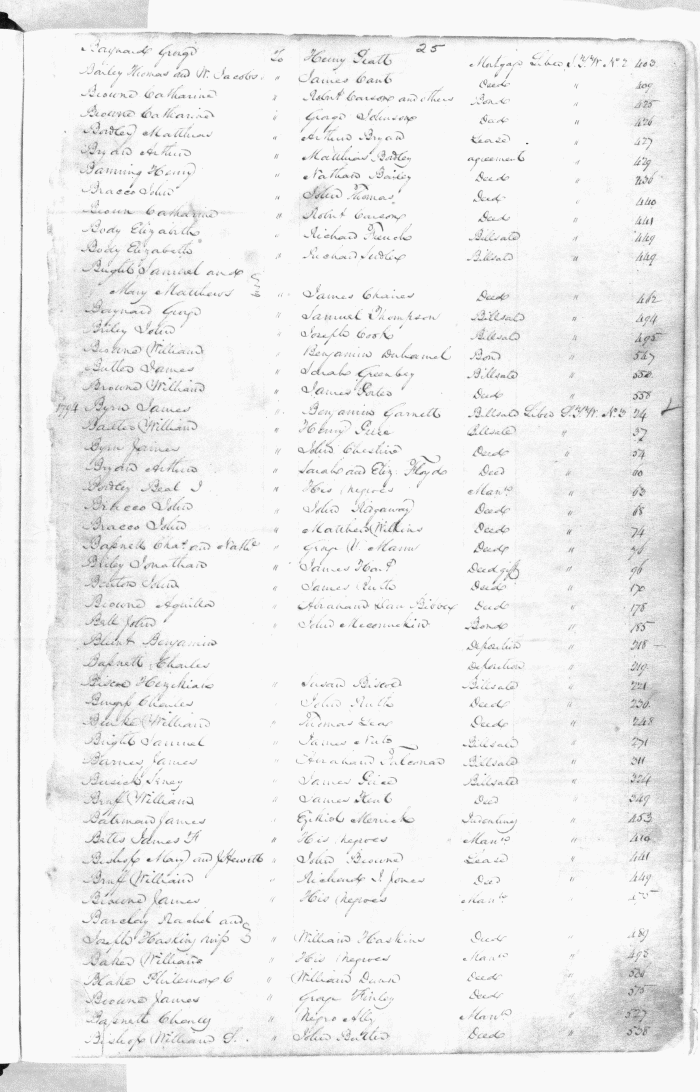 25
Baynard George To Henry Pratt Mortgage Liber S.T.W. No 2 403
Bailey Thomas and W. Jacobs " James Cant Deed " 409
Browne Catharine " Robert Carson and others Bond " 425
Browne Catharine " George Johnson Deed " 426
Bodley Matthias " Arthur Bryan Lease " 427
Bryan Arthur " Matthias Bodley agreement " 429
Banning Henry " Nathan Bailey Deed " 436
Bracco John " John Thomas Deed " 440
Brown Catharine " Robert Carson Deed " 441
Body Elizabeth " Richard French Billsale " 449
Body Elizabeth " Richard Billsale " 449
Bright Samuel and
Mary Matthews " James Chaires Deed " 462
Baynard George " Samuel Thompson Billsale " 494
Briley John " Joseph Cook Billsale " 495
Browne William " Benjamin Duhamel Bond " 547
Butler James " Greenbey Billsale " 552
Browne William " James Bates Deed " 558
1794 Byrn James " Benjamin Garnett Billsale Liber S.T.W. No 3 24
Baxter William " Henry Price Billsale " 37
Byrn James " John Cheshire Deed " 54
Bryan Arthur " Sarah and Eliz. Floyd Deed " 60
Bordley Beal I " His negroes Manns " 63
Bracco John " John Ridgaway Deed " 68
Bracco John " Matthew Wilkins Deed " 74
Bassnett Chas and Nathl " George W Mann Deed "
Briley Jonathan " James Hart Deed gift " 96
Benton John " James Ruth Deed " 170
Browne Aquilla " Abraham Bisbex Deed " 178
Bell John " John Meconnekin Bond " 185
Blunt Benjamin Deposition " 218
Bassnett Charles Deposition " 219
Biscoe Hezekiah " Susan Biscoe Billsale " 221
Charles " John Ruth Deed " 230
William " Thomas Lea Deed " 248
Bright Samuel " James Billsale " 271
Barnes James " Abraham Falconar Billsale " 311
James Price Billsale " 324
Bruff William " James Kent Deed " 349
Bateman James " Ezekiel Merrick Indenting " 453
Betts James F " His negroes " Manns "
Bishop Mary and J Hewitt " John Browne Lease " 441
Bruff William " Richard I Jones Deed " 449
Browne James " His negroes Manns " 475
Barclay Rachel and
Joseph Haskins wife " William Haskins Deed " 489
Baker William " His Negroes Manns " 495
Blake Philemon C " William Dunn Deed " 525
Browne James " George Finley Deed " 575
Bassnett Charles " Negro Ally Mann " 527
Bishop William S. " John Butler Deed " 538